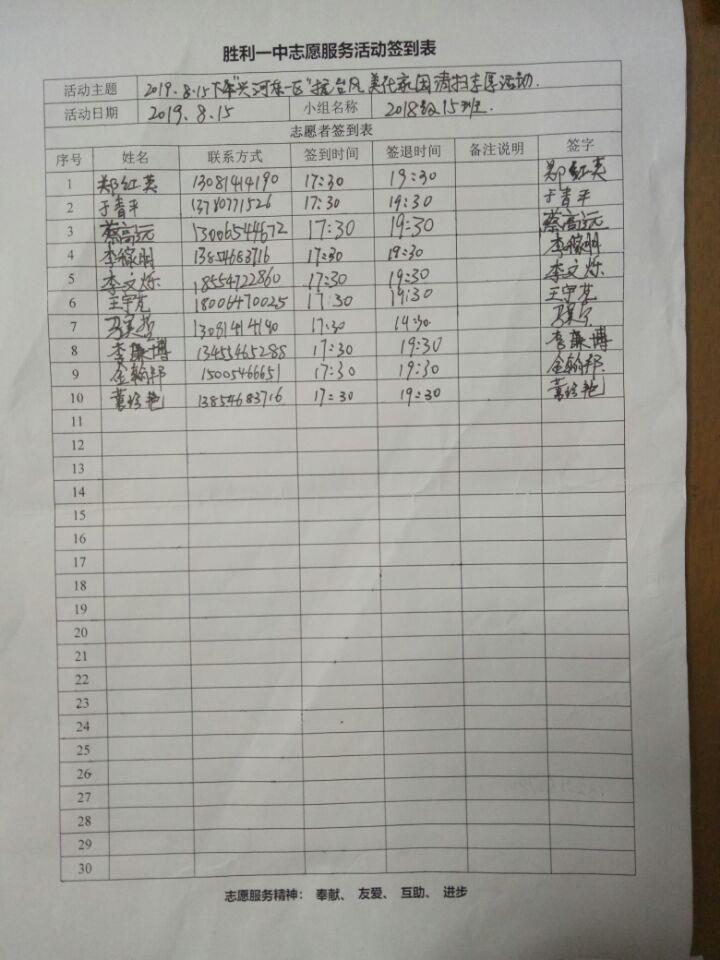 胜利一中志愿服务活动签到表
活动主题 2019.8.15下午"兴河东一区"抗台风 美化家园清扫志愿活动.
活动日期 2019.8.15 小组名称 2018级15班.
志愿者签到表
序号 姓名 联系方式 签到时间 签退时间 备注说明 签字
1 郑红英 13081414190 17:30 19:30 郑红英
2 于青平 13780771526 17:30 19:30 于青平
3 蔡高远 13006544672 17:30 19:30 蔡高远
4 13854683716 17:30 19:30
5 李文烁 18554722860 17:30 19:30 李文烁
6 18006470025 17:30 19:30
7 13081414190 17:30 19:30
8 13455465288 17:30 19:30
9 15005466651 17:30 19:30
10 13854683716 17:30 19:30
11
12
13
14
15
16
17
18
19
20
21
22
23
24
25
26
27
28
29
30
志愿服务精神： 奉献、 友爱、 互助、 进步